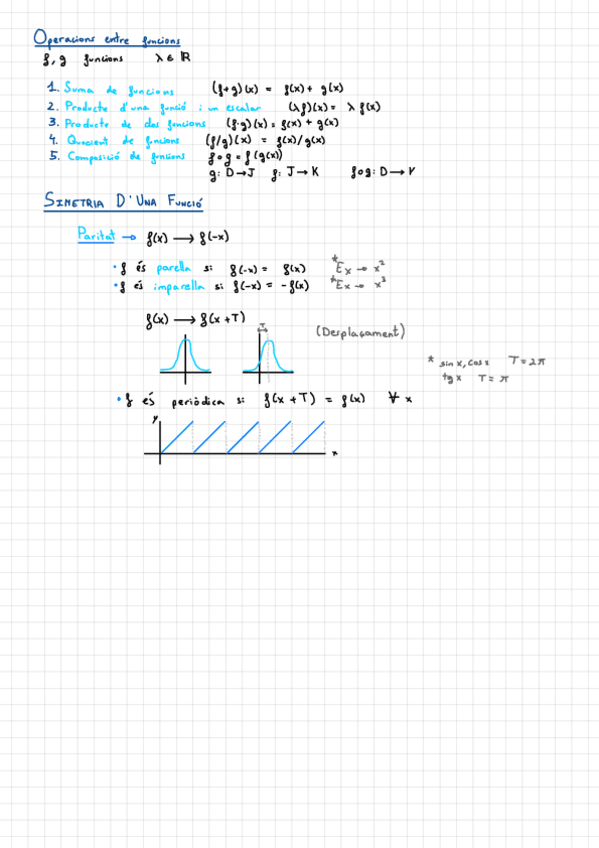 Operacions entre funcions
f, g funcions λ ∈ ℝ
1. Suma de funcions (f+g)(x) = f(x) + g(x)
2. Producte d'una funció i un escalar (λf)(x) = λ f(x)
3. Producte de dos funcions (f·g)(x) = f(x) + g(x)
4. Quocient de funcions (f/g)(x) = f(x)/g(x)
5. Composició de funcions f∘g = f(g(x))
g: D→J f: J→K f∘g: D→V
SIMETRIA D'UNA FUNCIÓ
Paritat → f(x) ⟶ f(-x)
• f és parella si: f(-x) = f(x) *Ex → x²
• f és imparella si: f(-x) = -f(x) *Ex → x³
f(x) ⟶ f(x+T)
T
(Desplaçament)
* sin x, cos x T = 2π
tg x T = π
• f és periòdica si: f(x+T) = f(x) ∀ x
y
x